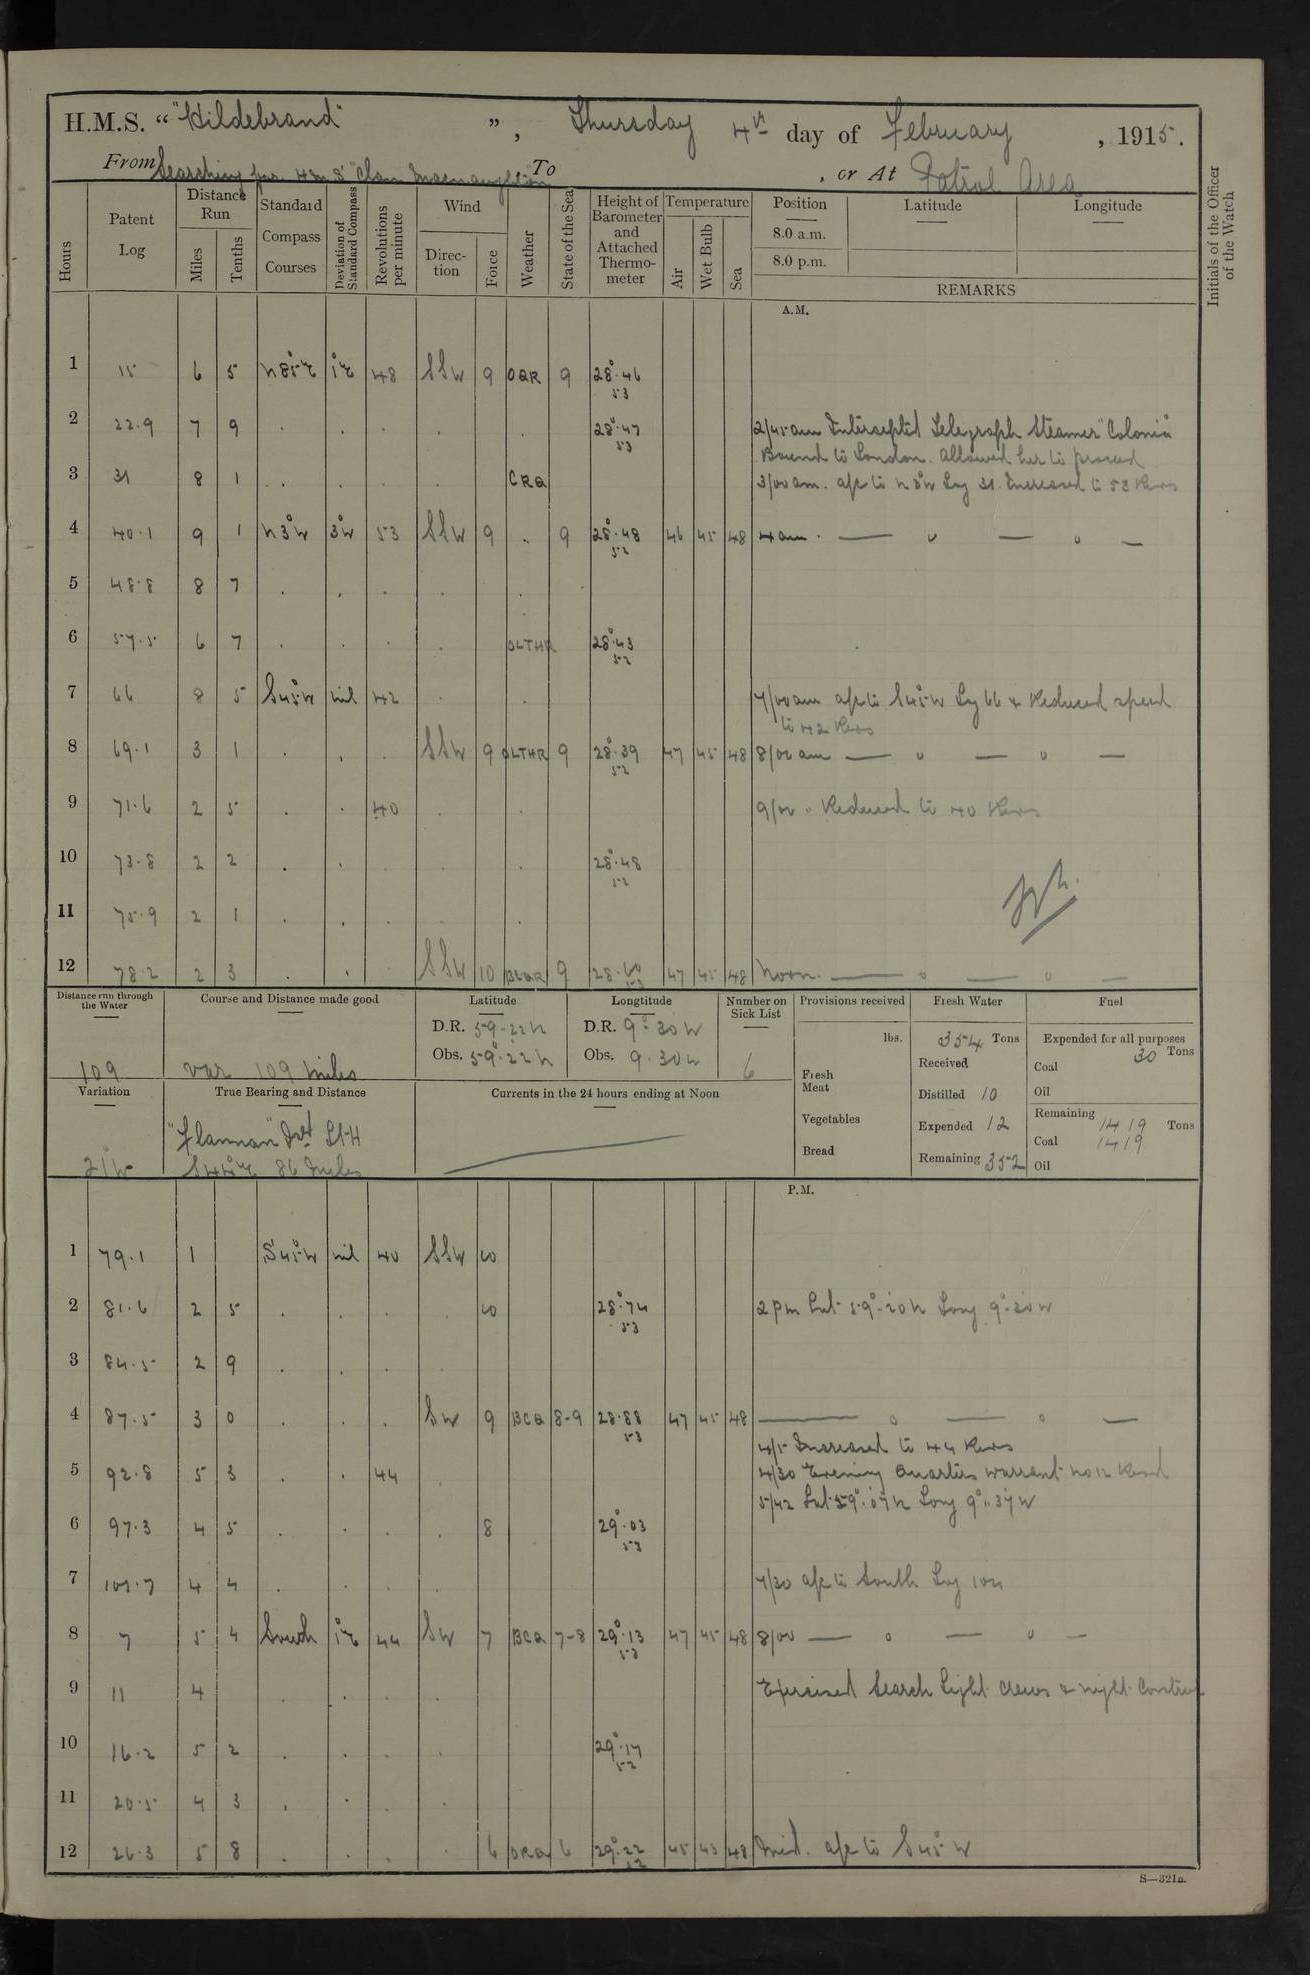 H.M.S. “ "Hildebrand" ”, Thursday 4th day of February, 1915.
From Searching for HMS "Clan Macnaughton" To , or At Patrol Area
Hours
Patent Log
Distance Run
Miles
Tenths
Standard Compass Courses
Deviation of Standard Compass
Revolutions per minute
Wind
Direction
Force
Weather
State of the Sea
Height of Barometer and Attached Thermometer
Temperature
Air
Wet Bulb
Sea
Position
8.0 a.m.
8.0 p.m.
Latitude
Longitude
REMARKS
Initials of the Officer of the Watch
A.M.
1 15 6 5 N85°E 1°E 48 SSW 9 OQR 9 28.46 53
2 22.9 7 9 . . . . . 28.47 53 2/45am Intercepted Telegraph Steamer "Colonia"
Bound to London. Allowed her to proceed
3 31 8 1 . . . . CRQ 3/00am. a/c to N3°W Log 31. Increased to 53 Revs
4 40.1 9 1 N3°W 3°W 53 SSW 9 . 9 28.48 52 46 45 48 4am. — " — " —
5 48.8 8 7 . . . . .
6 57.5 6 7 . . . . OLTHR 28.43 52
7 66 8 5 S45°W nil 42 . . 7/00am a/c to S45°W Log 66 & Reduced speed
to 42 Revs
8 69.1 3 1 . . . SSW 9 OLTHR 9 28.39 52 47 45 48 8/00 am — " — " —
9 71.6 2 5 . . 40 . . 9/00 " Reduced to 40 Revs
10 73.8 2 2 . . . . 28.48 52
11 75.9 2 1 . . . . .
12 78.2 2 3 . . . SSW 10 9 28.60 53 47 45 48 Noon. — " — " —
Distance run through the Water
109
Course and Distance made good
Var 109 miles
Latitude
D.R. 59.22N
Obs. 59°.22N
Longtitude
D.R. 9°.30W
Obs. 9.30W
Number on Sick List
6
Provisions received
lbs.
Fresh Meat
Vegetables
Bread
Fresh Water
354 Tons
Received
Distilled 10
Expended 12
Remaining 352
Fuel
Expended for all purposes
30 Tons
Coal
Oil
Remaining 1419 Tons
Coal 1419
Oil
Variation
21W
True Bearing and Distance
"Flannan" Lt H
86 Miles
Currents in the 24 hours ending at Noon
P.M.
1 79.1 1 S45°W nil 40 SSW 10
2 81.6 2 5 . . . 10 28.74 53 2 pm Lat 59°.20N Long 9°.30W
3 84.5 2 9 . . .
4 87.5 3 0 . . . SW 9 BCQ 8-9 28.88 53 47 45 48 — " — " —
4/5 Increased to 44 Revs
5 92.8 5 3 . . 44 . 4/30 Evening Quarters Warrant No 12 Read
5/42 Lat 59°.07N Long 9°.37W
6 97.3 4 5 . . . . 8 29.03 53
7 101.7 4 4 . . . . 7/30 a/c to South Log 104
8 7 5 4 South 1°E 44 SW 7 BCQ 7-8 29.13 53 47 45 48 8/00 — " — " —
9 11 4 . . . . Exercised Search Light Crews & night Control
10 16.2 5 2 . . . . 29.17 52
11 20.5 4 3 . . . .
12 26.3 5 8 . . . . 6 ORQ 6 29.22 52 45 43 48 Mid. a/c to S45°W
S—321a.